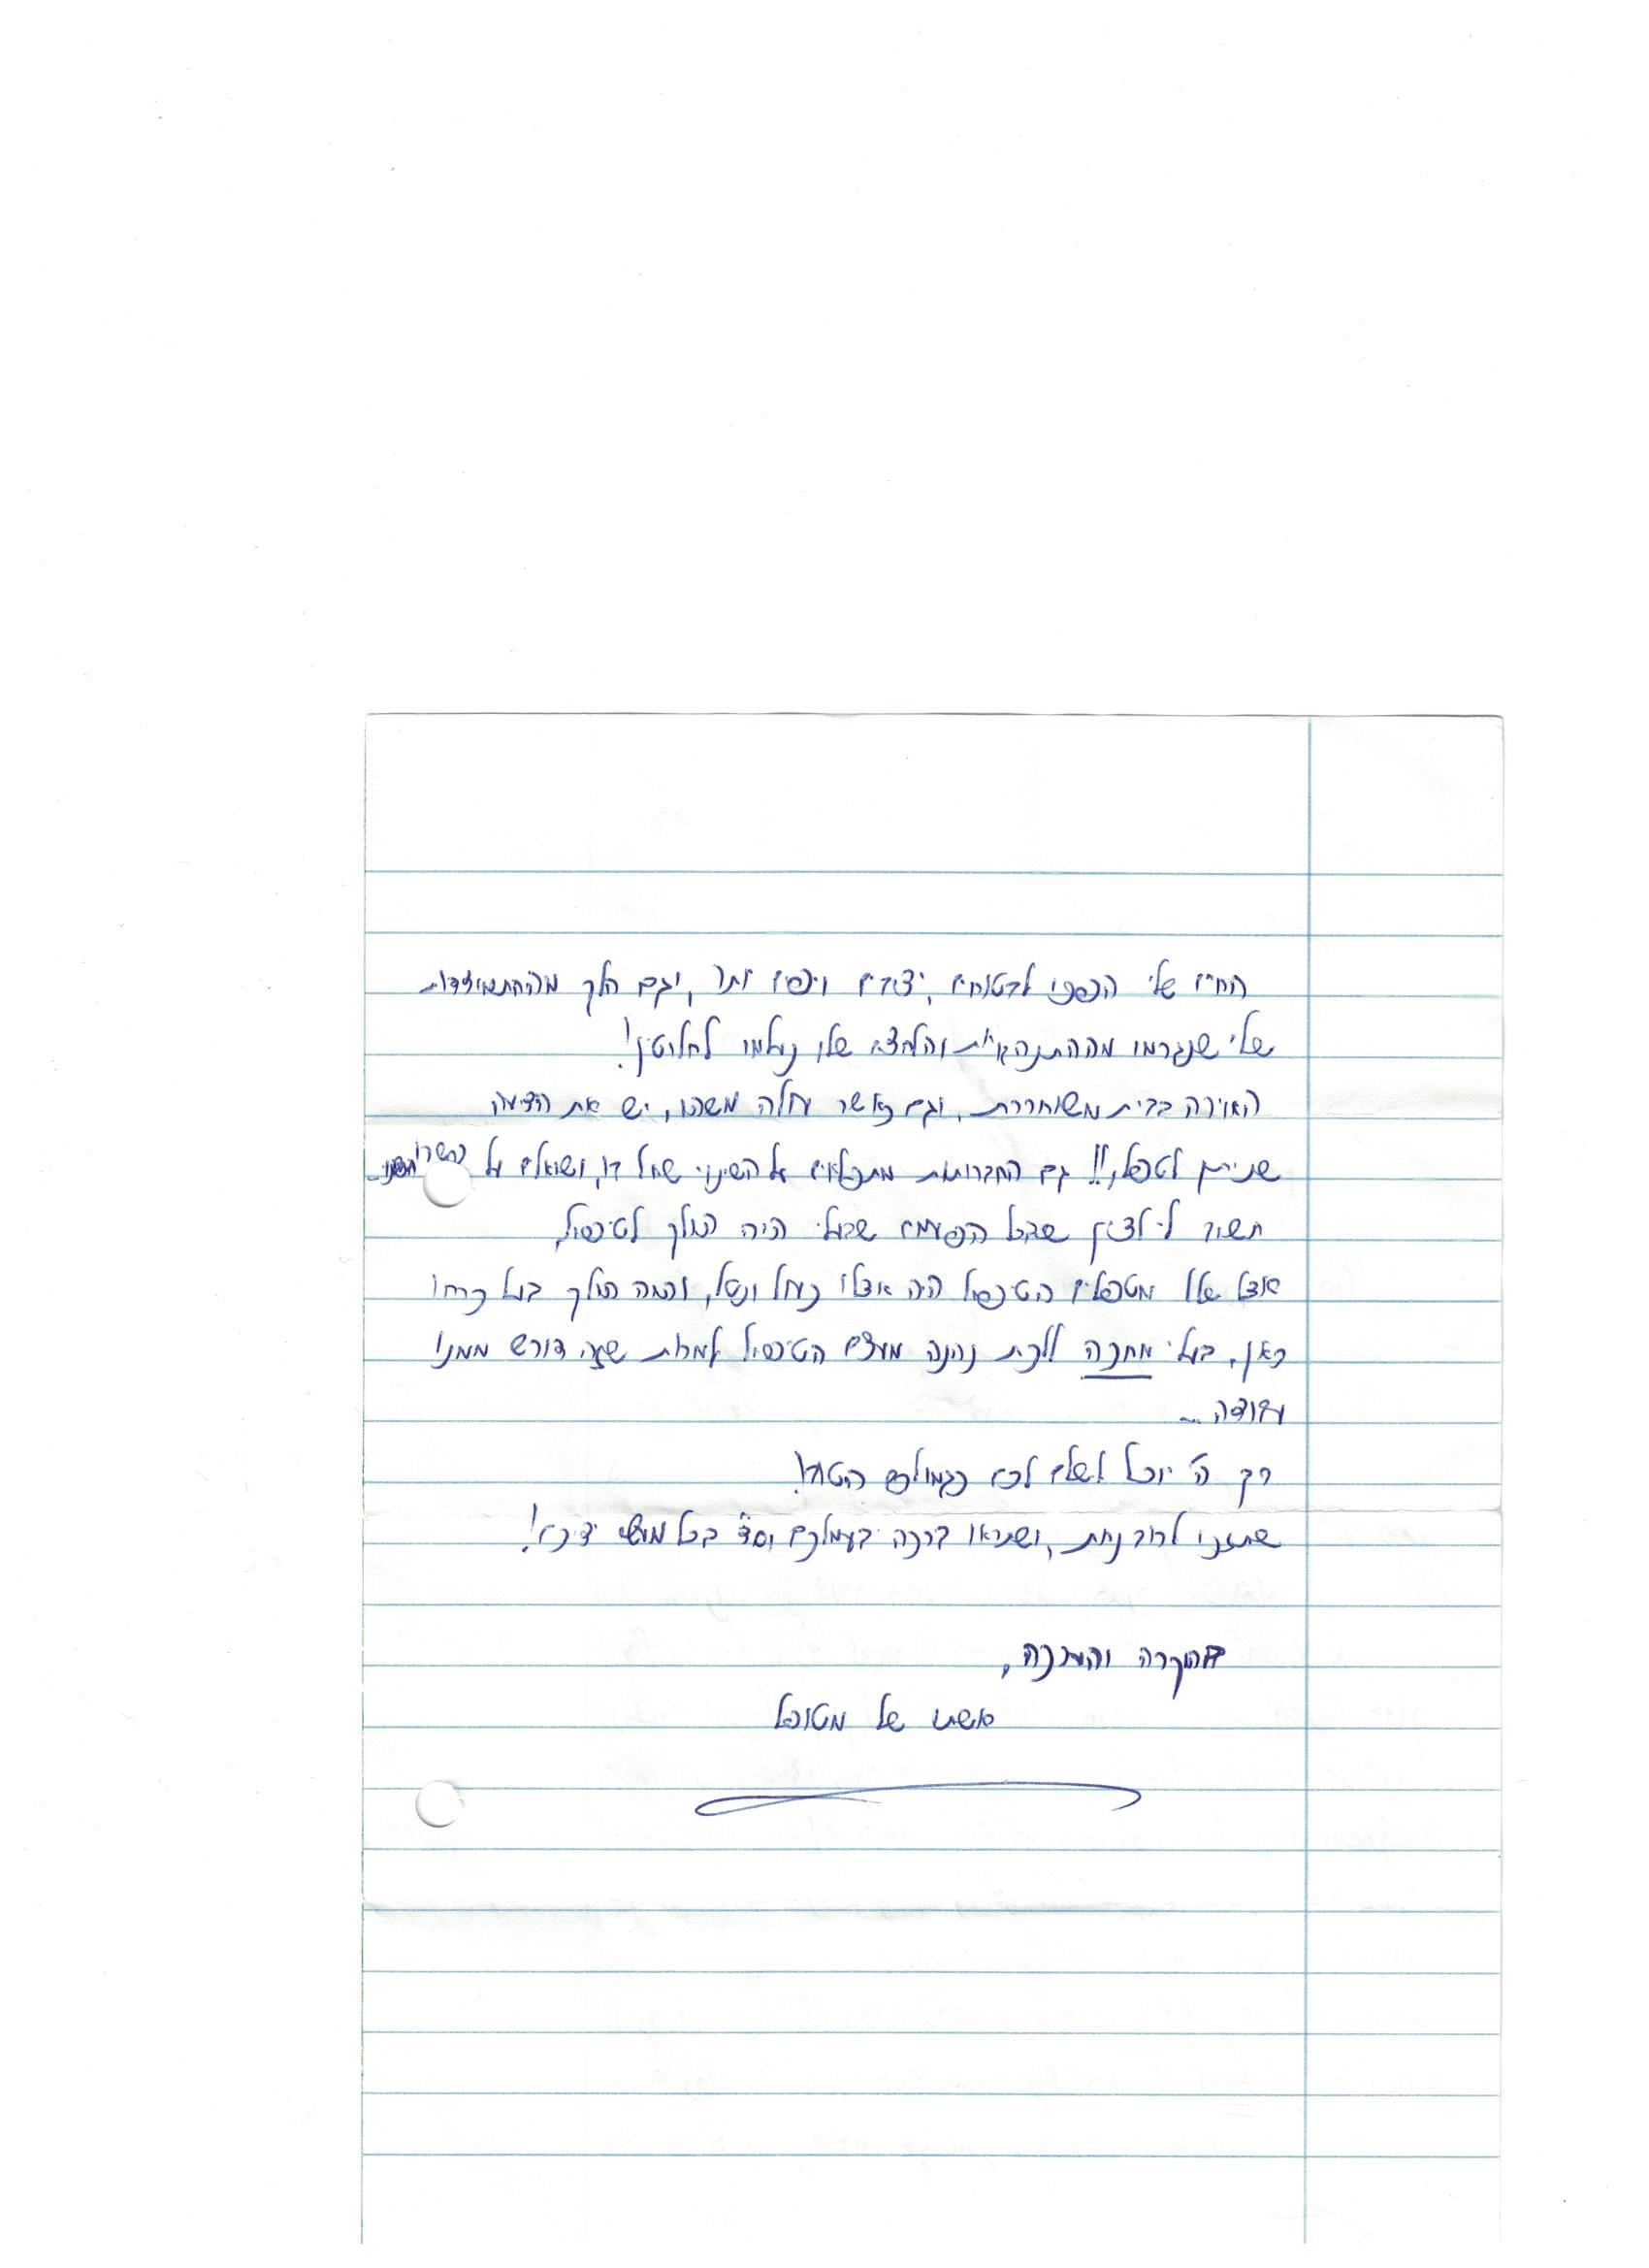 החיים שלי הפכו לבטוחים, יציבים ויפים יותר, וגם חלק מההתמודדות
שלי שנגרמו מההתנהגויות והלחצים שלו נעלמו לחלוטין!
האוירה בבית משוחררת, וגם כאשר עולה משהו, יש את הידיעה
שניתן לטפל!! גם החברותות מתפלאים על השינוי שחל בו, ושואלים על
חשוב לי לציין שבכל הפעמים שבעלי היה הולך לטיפול,
אצל שלל מטפלים הטיפול היה אצלו כעול ונטל, והיה הולך בעל כרחו
כאן, בעלי מחכה ללכת נהנה מעצם הטיפול למרות שזה דורש ממנו
עבודה...
רק ה' יוכל לשלם לכם כגמולכם הטוב!
שתזכו לרוב נחת, ושתראו ברכה בעמלכם וסד בכל מעשי ידיכם!
בהוקרה והערכה,
אשתו של מטופל